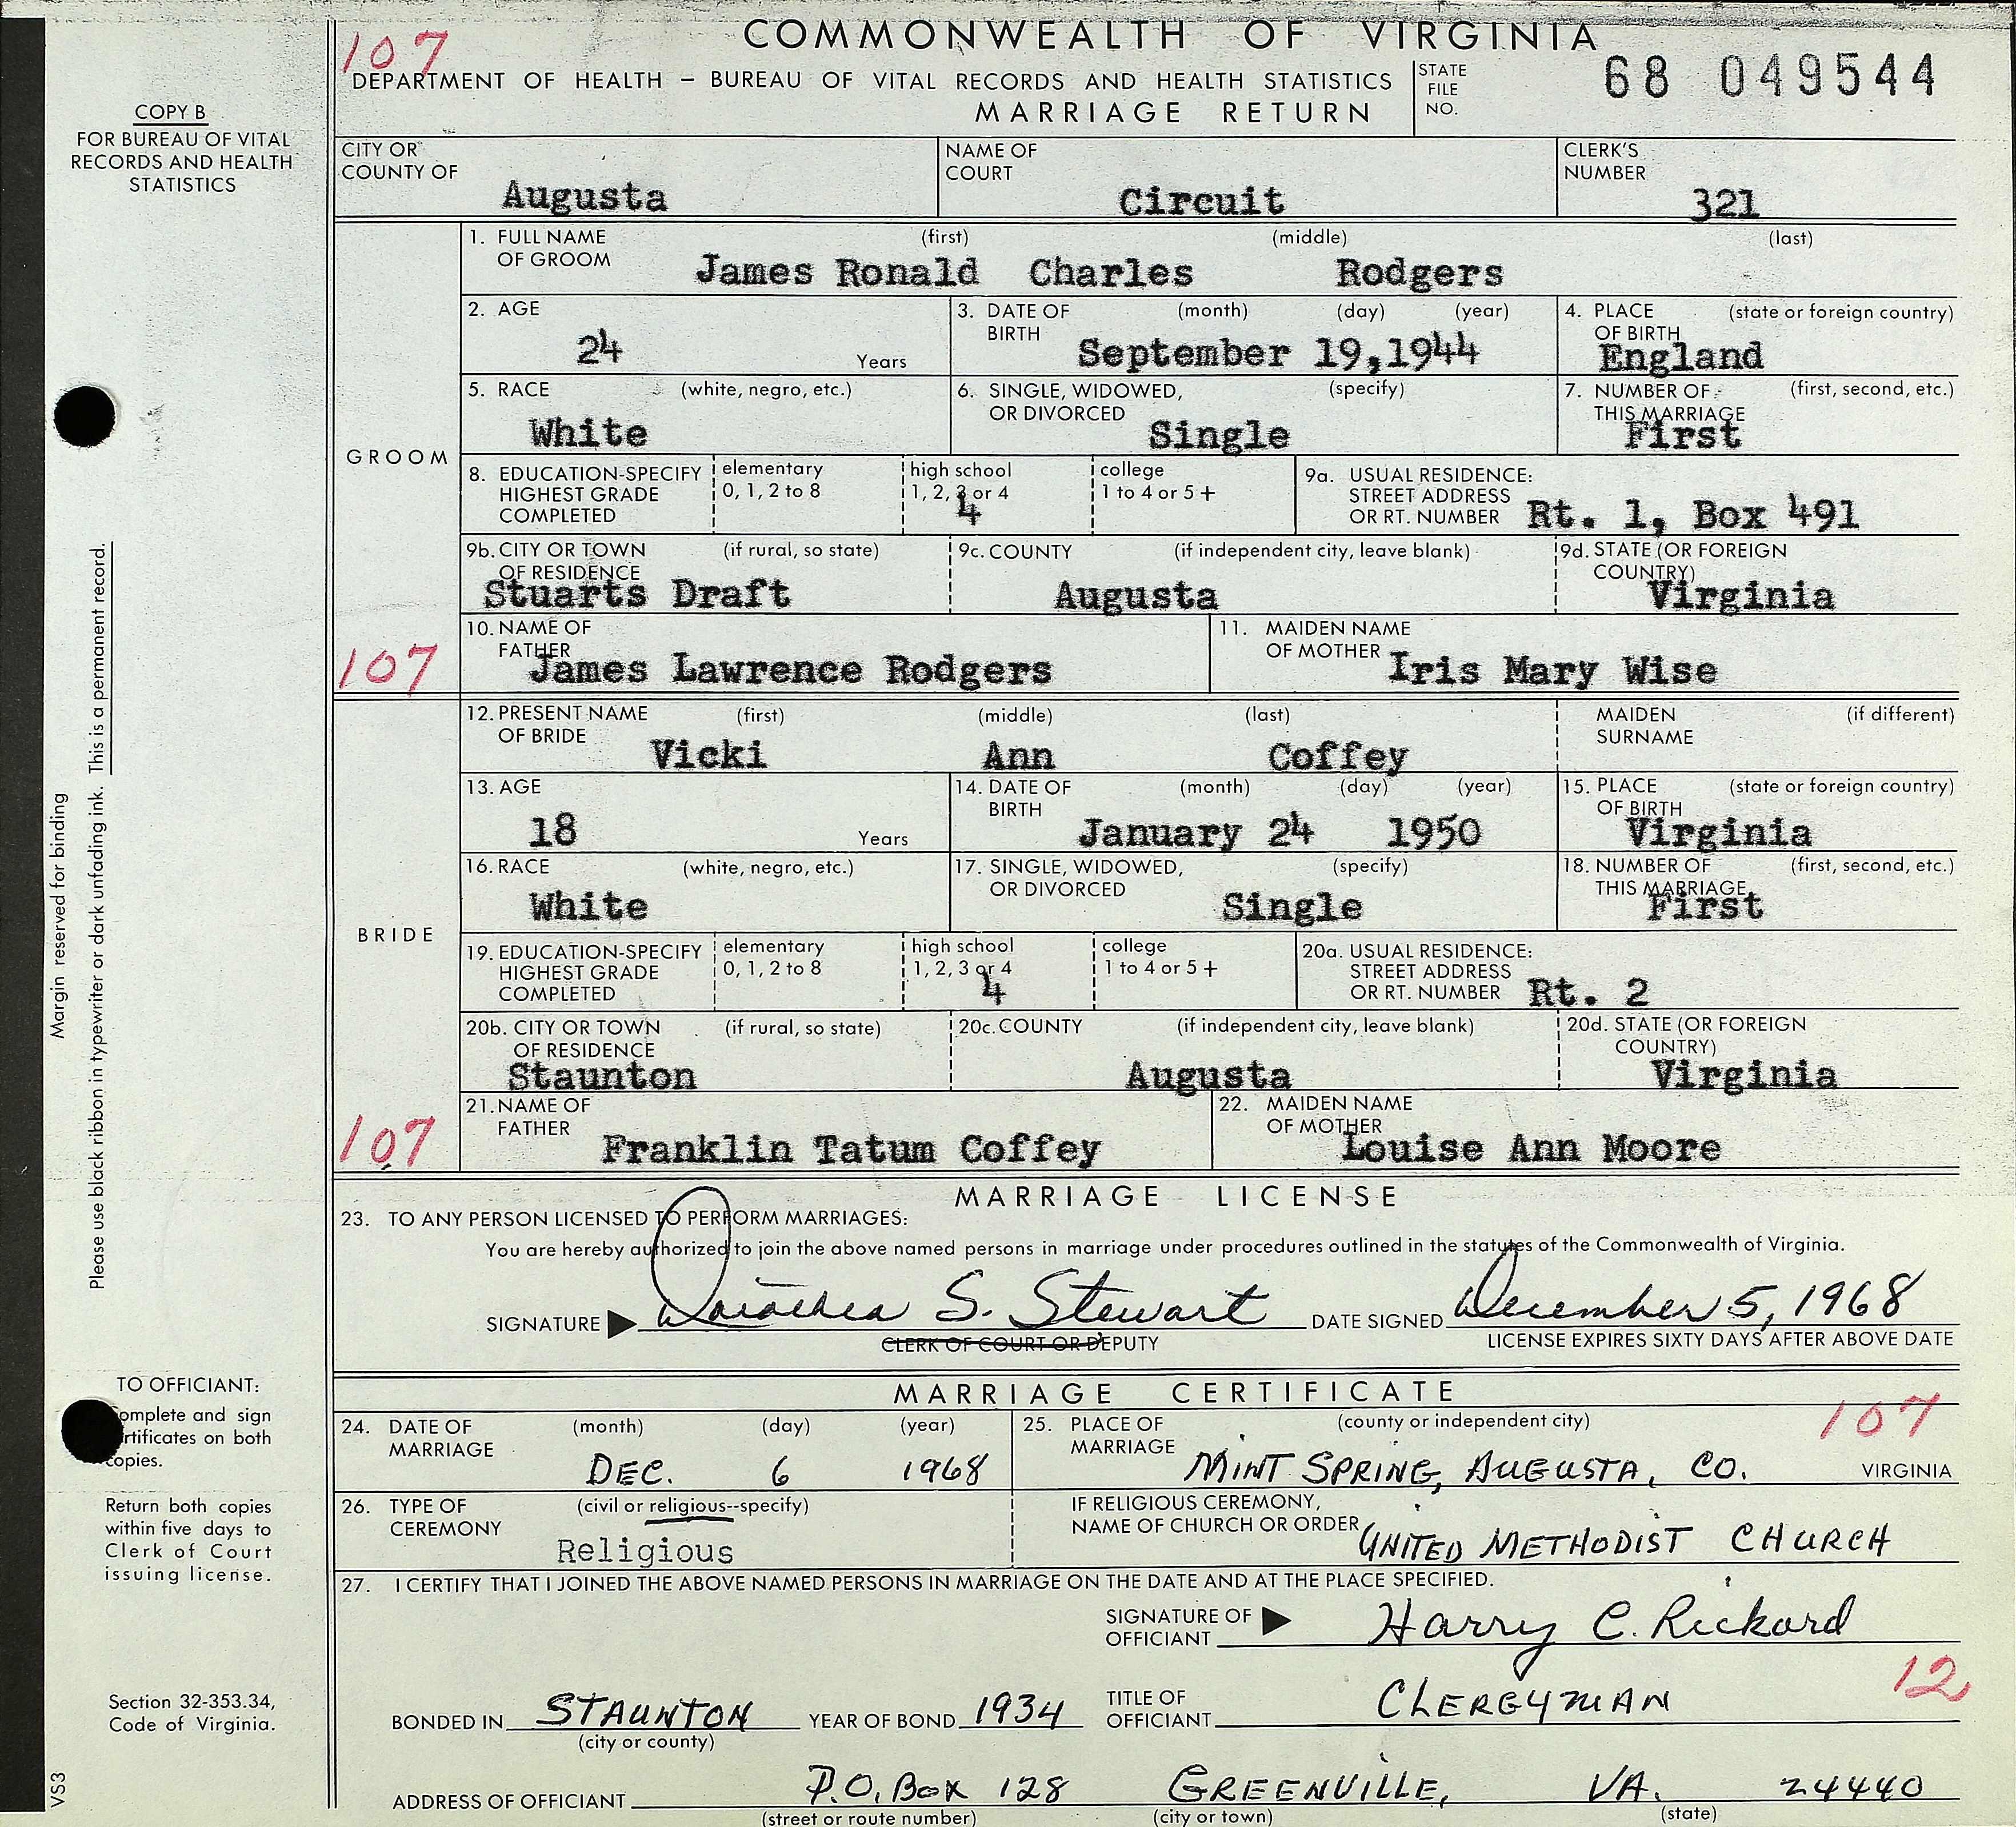 107
COMMONWEALTH OF VIRGINIA
DEPARTMENT OF HEALTH – BUREAU OF VITAL RECORDS AND HEALTH STATISTICS
MARRIAGE RETURN
STATE FILE NO.
68 049544
COPY B
FOR BUREAU OF VITAL
RECORDS AND HEALTH
STATISTICS
CITY OR COUNTY OF Augusta
NAME OF COURT Circuit
CLERK'S NUMBER 321
GROOM
1. FULL NAME OF GROOM (first) (middle) (last)
James Ronald Charles Rodgers
2. AGE 24 Years
3. DATE OF BIRTH (month) (day) (year) September 19,1944
4. PLACE OF BIRTH (state or foreign country) England
5. RACE (white, negro, etc.) White
6. SINGLE, WIDOWED, OR DIVORCED (specify) Single
7. NUMBER OF THIS MARRIAGE (first, second, etc.) First
8. EDUCATION-SPECIFY HIGHEST GRADE COMPLETED
elementary 0, 1, 2 to 8
high school 1, 2, 3 or 4 4
college 1 to 4 or 5 +
9a. USUAL RESIDENCE: STREET ADDRESS OR RT. NUMBER Rt. 1, Box 491
9b. CITY OR TOWN OF RESIDENCE (if rural, so state) Stuarts Draft
9c. COUNTY (if independent city, leave blank) Augusta
9d. STATE (OR FOREIGN COUNTRY) Virginia
107
10. NAME OF FATHER James Lawrence Rodgers
11. MAIDEN NAME OF MOTHER Iris Mary Wise
BRIDE
12. PRESENT NAME OF BRIDE (first) (middle) (last)
Vicki Ann Coffey
MAIDEN SURNAME (if different)
13. AGE 18 Years
14. DATE OF BIRTH (month) (day) (year) January 24 1950
15. PLACE OF BIRTH (state or foreign country) Virginia
16. RACE (white, negro, etc.) White
17. SINGLE, WIDOWED, OR DIVORCED (specify) Single
18. NUMBER OF THIS MARRIAGE (first, second, etc.) First
19. EDUCATION-SPECIFY HIGHEST GRADE COMPLETED
elementary 0, 1, 2 to 8
high school 1, 2, 3 or 4 4
college 1 to 4 or 5 +
20a. USUAL RESIDENCE: STREET ADDRESS OR RT. NUMBER Rt. 2
20b. CITY OR TOWN OF RESIDENCE (if rural, so state) Staunton
20c. COUNTY (if independent city, leave blank) Augusta
20d. STATE (OR FOREIGN COUNTRY) Virginia
107
21. NAME OF FATHER Franklin Tatum Coffey
22. MAIDEN NAME OF MOTHER Louise Ann Moore
MARRIAGE LICENSE
23. TO ANY PERSON LICENSED TO PERFORM MARRIAGES:
You are hereby authorized to join the above named persons in marriage under procedures outlined in the statutes of the Commonwealth of Virginia.
SIGNATURE Dorothea S. Stewart DATE SIGNED December 5, 1968
CLERK OF COURT OR DEPUTY
LICENSE EXPIRES SIXTY DAYS AFTER ABOVE DATE
MARRIAGE CERTIFICATE
24. DATE OF MARRIAGE (month) (day) (year) DEC. 6 1968
25. PLACE OF MARRIAGE (county or independent city) MINT SPRING, AUGUSTA, CO. VIRGINIA
107
26. TYPE OF CEREMONY (civil or religious--specify) Religious
IF RELIGIOUS CEREMONY, NAME OF CHURCH OR ORDER UNITED METHODIST CHURCH
27. I CERTIFY THAT I JOINED THE ABOVE NAMED PERSONS IN MARRIAGE ON THE DATE AND AT THE PLACE SPECIFIED.
SIGNATURE OF OFFICIANT Harry C. Rickard
12
BONDED IN STAUNTON (city or county)
YEAR OF BOND 1934
TITLE OF OFFICIANT CLERGYMAN
ADDRESS OF OFFICIANT P.O. BOX 128 GREENVILLE, VA. 24440
(street or route number) (city or town) (state)
Margin reserved for binding
Please use black ribbon in typewriter or dark unfading ink. This is a permanent record.
TO OFFICIANT:
omplete and sign
rtificates on both
copies.
Return both copies
within five days to
Clerk of Court
issuing license.
Section 32-353.34,
Code of Virginia.
VS3